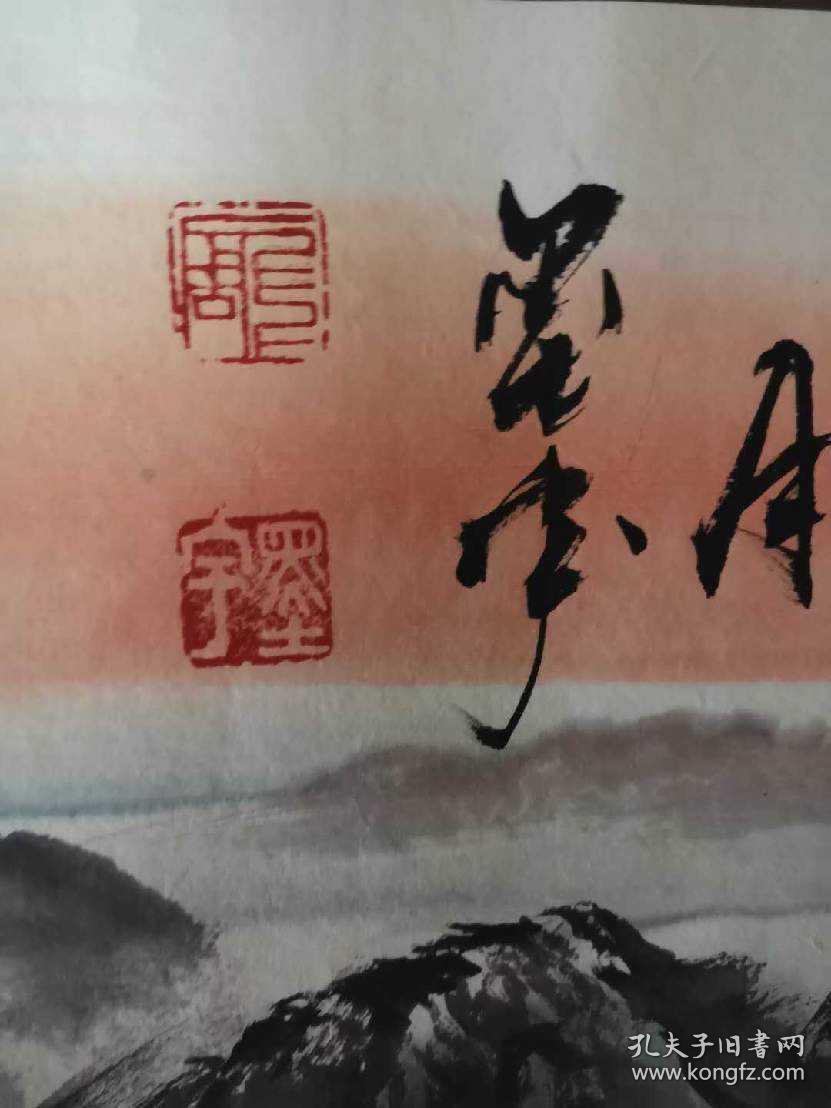 月
墨宇
墨宇
孔夫子旧书网
www.kongfz.com